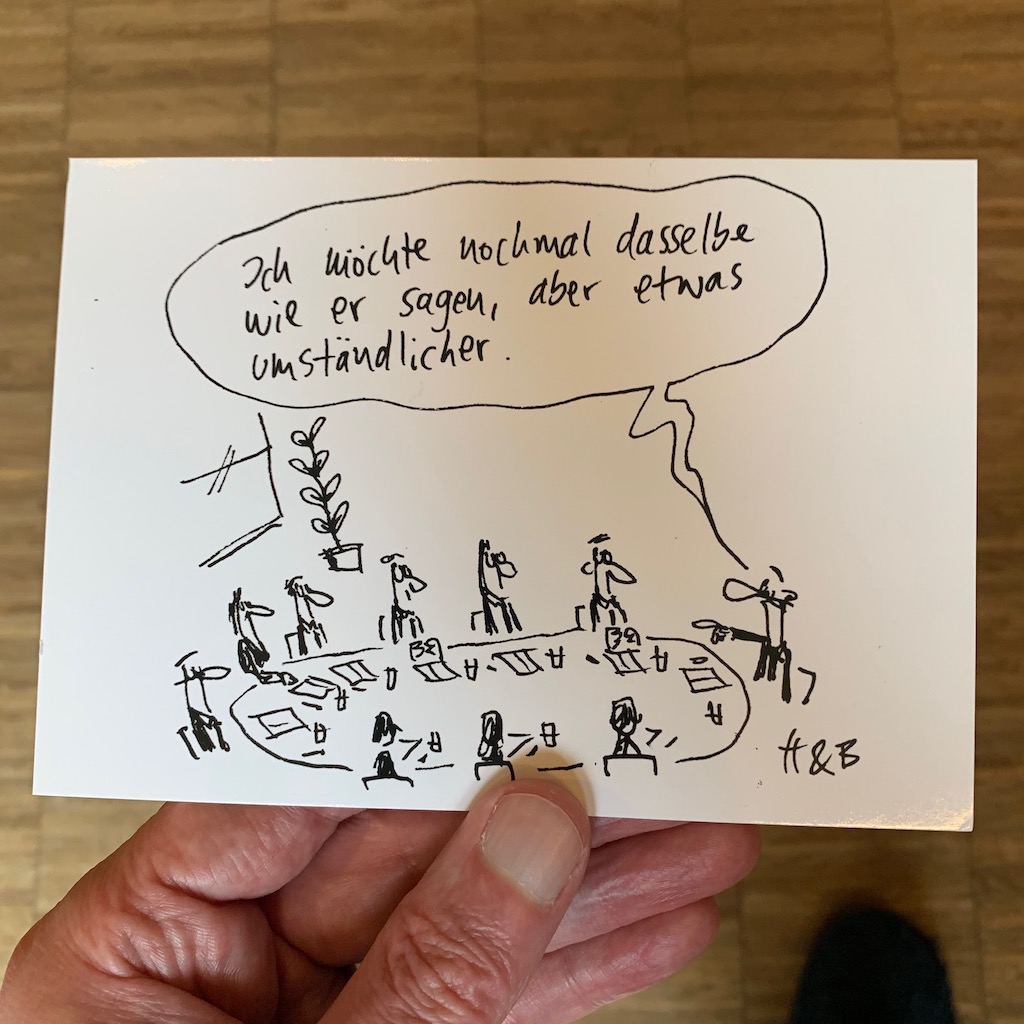 Ich möchte nochmal dasselbe
wie er sagen, aber etwas
umständlicher.
H&B